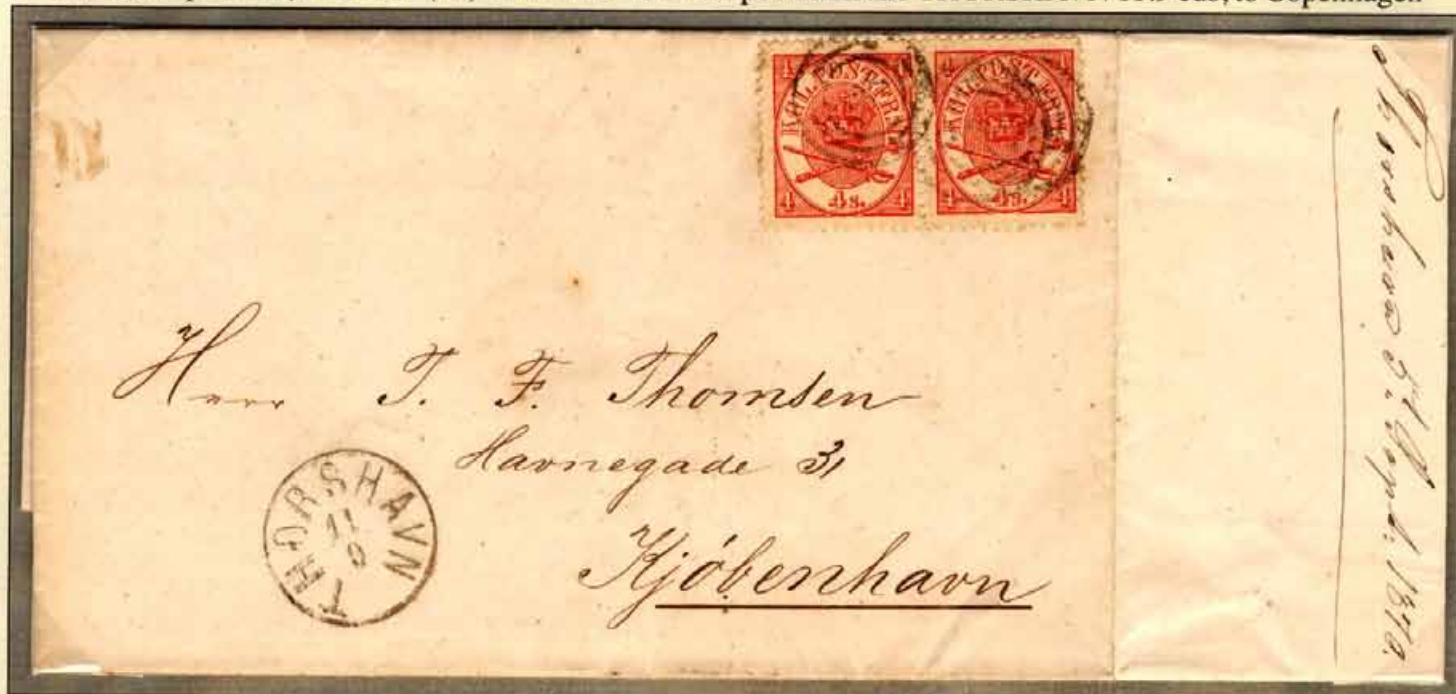 to Copenhagen
4 4
KGL. POST FRM.
4 4s. 4
4 4
KGL. POST FRM.
4 4s. 4
Herr T. F. Thomsen
Havnegade 31
Kjöbenhavn
THORSHAVN
11
9
Thorshavn Septb. 1870.